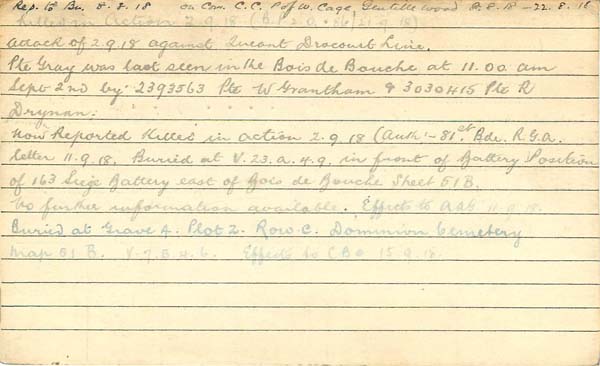 Rep. to Bn. 8.8.18 on Com. C.C. P of W. Cage, Gentelle Wood 8.8.18 - 22.8.18
Killed in Action 2.9.18 21.9.18)
Attack of 2.9.18 against Queant Drocourt Line.
Pte Gray was last seen in the Bois de Bouche at 11.00 am
Sept 2nd by: 2393563 Pte W Grantham & 3030415 Pte R
Drynan:
Now Reported Killed in action 2.9.18 (Auth:- 81st Bde. R.G.A.
letter 11.9.18. Buried at V.23.a.4.9. in front of Battery Position
of 163 Siege Battery east of Bois de Bouche Sheet 51B.
No further information available. Effects to 11.9.18.
Buried at Grave 4. Plot 2. Row C. Dominion Cemetery
Map 51 B. V.7.5.4.6. Effects to 15.9.18.